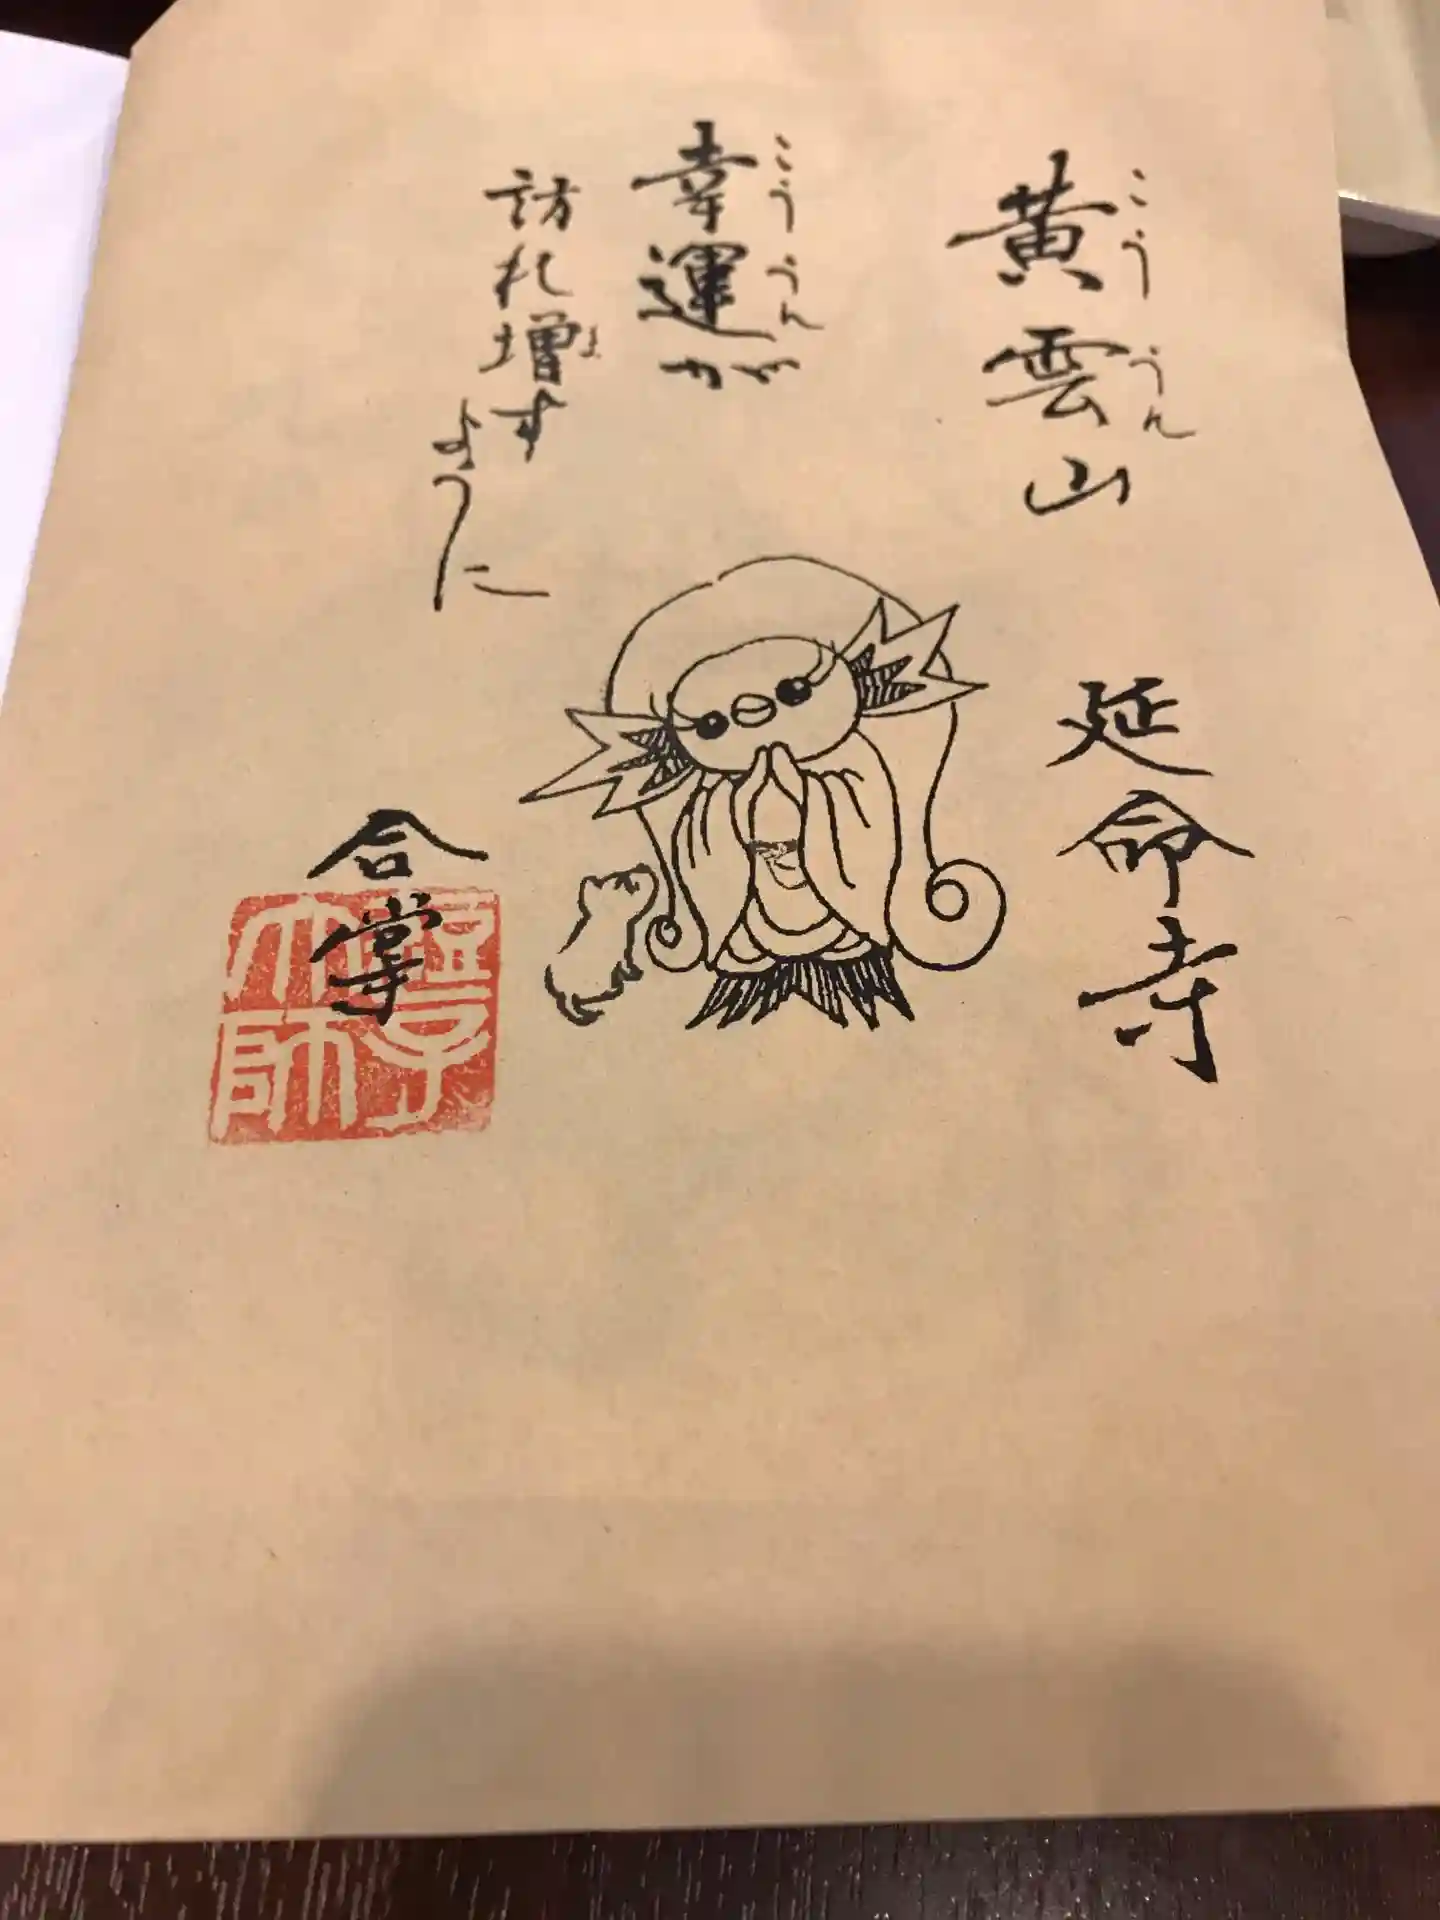 黄雲山
こううん
延命寺
幸運が
こううん
訪れ増す
ま
ように
合掌
大師